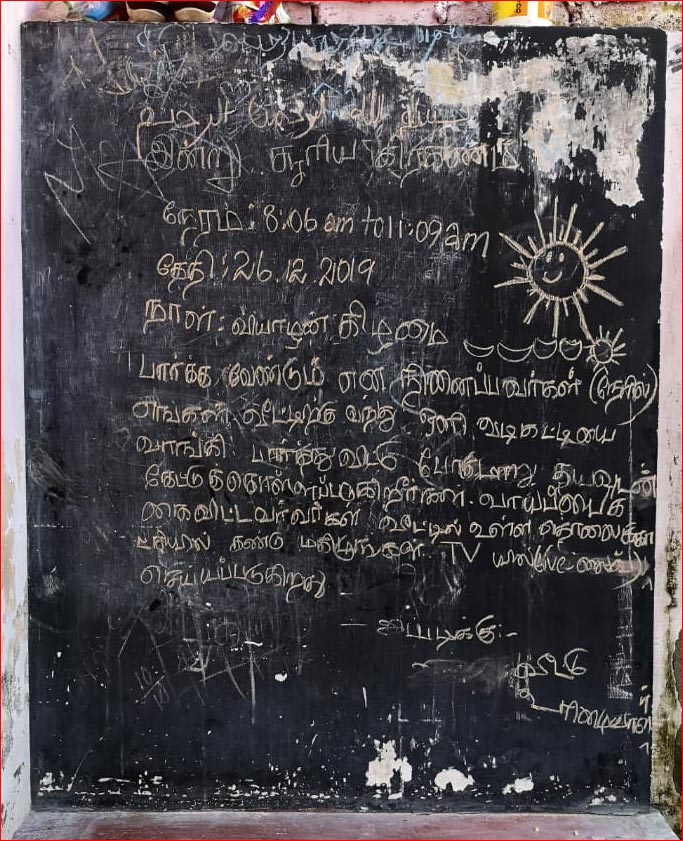 இன்று சூரிய கிரகணம்
நேரம்: 8:06 am to 11:09 am
தேதி: 26.12.2019
நாள்: வியாழன் கிழமை
பார்க்க வேண்டும் என நினைப்பவர்கள் (நேரில்)
எங்கள் வீட்டிற்கு வந்து ஒளி வடிகட்டியை
வாங்கி பார்த்து விட்டு போகுமாறு தயவுடன்
கேட்டுக்கொள்ளப்படுகிறீர்கள். வாய்ப்பைக்
கைவிட்டவர்வர்கள் வீட்டில் உள்ள தொலைக்கா
ட்சியில் கண்டு மகிழுங்கள். TV யில் (live)
செய்யப்படுகிறது
- இப்படிக்கு:-
வீட்டு
உரிமையாளர்